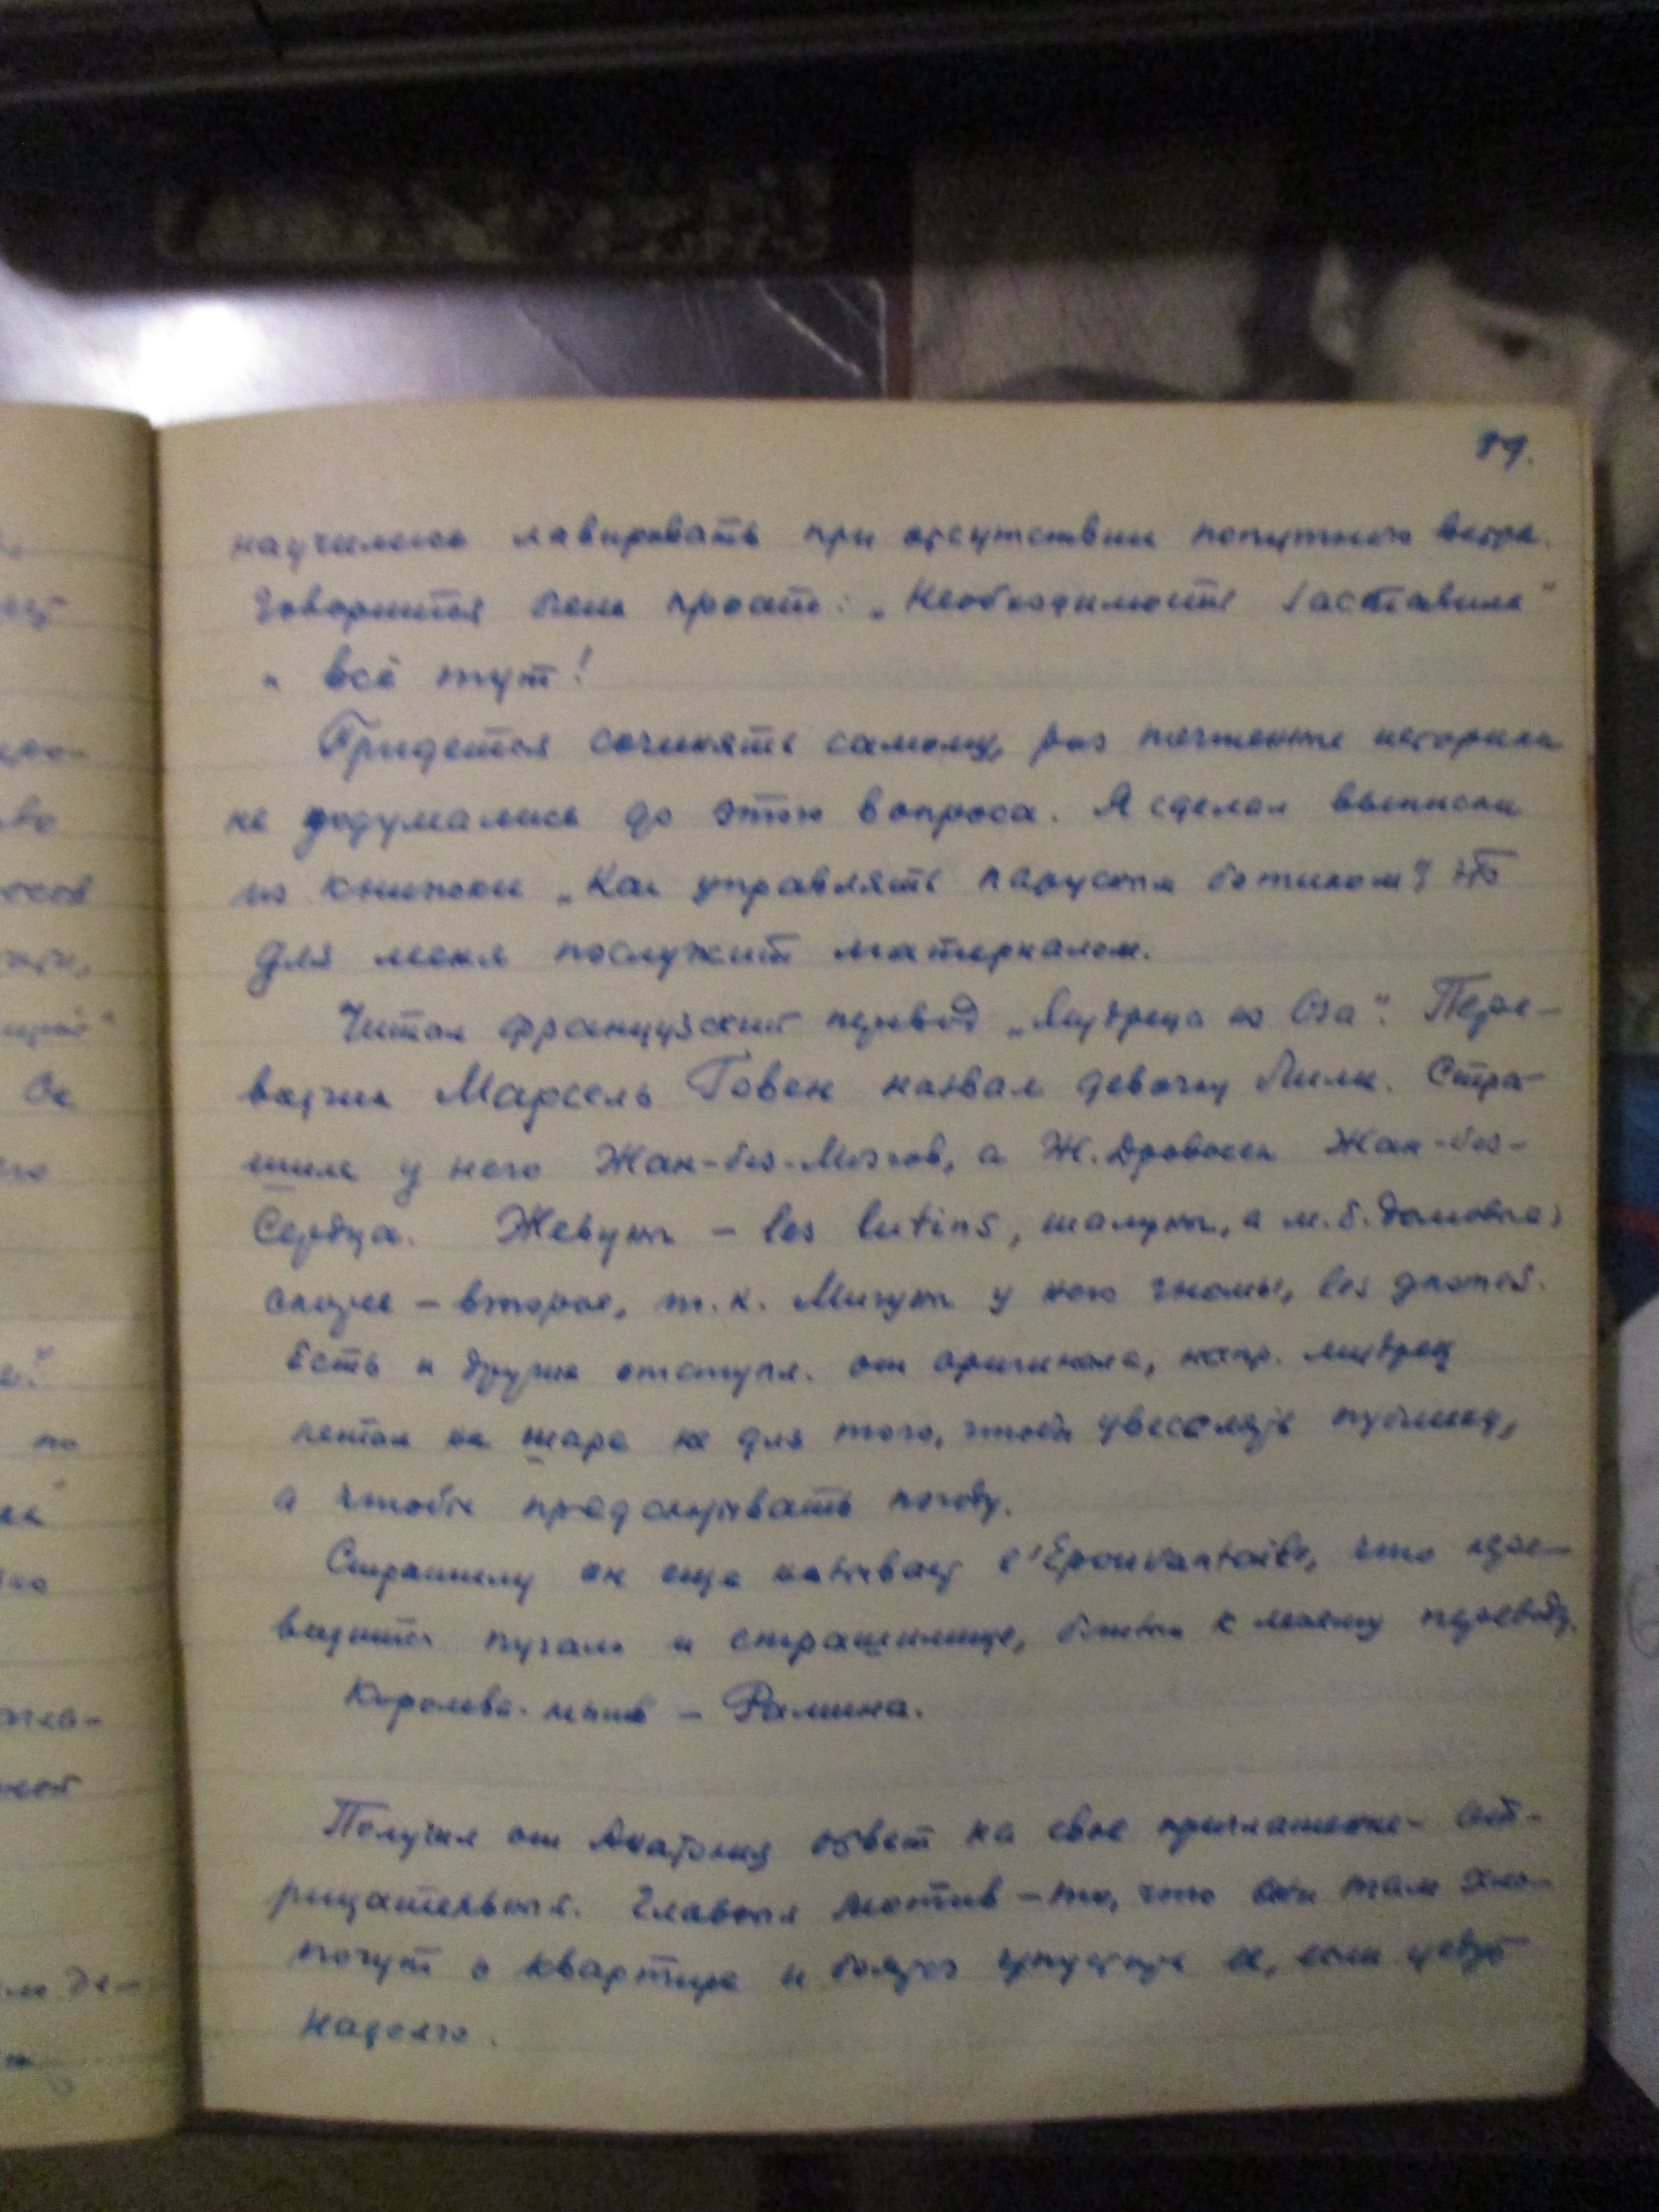 научились лавировать при отсутствии попутного ветра.
Говорится просто: „Необходимость заставила"
и всё тут!
Придется сочинять самому, раз почтенные историки
не додумались до этого вопроса. Я сделал выписки
из книжки „Как управлять парусным ботиком", это
для меня послужит материалом.
Читал французский перевод „Мудреца из Оза". Пере-
водчик Марсель Говен назвал девочку Лили. Стра-
шила у него Жан-без-Мозгов, а Ж. Дровосек Жан-без-
Сердца. Жевуны – les lutins, шалуны, а м.б. домовые;
скорее – второе, т.к. Мигуны у него гномы, les gnomes.
Есть и другие отступл. от оригинала, напр. мудрец
летал на шаре не для того, чтобы увеселять публику,
а чтобы предсказывать погоду.
Страшилу он еще называет l'Epouvantaile, что пере-
водится пугало и страшилище, ближе к моему переводу.
Королева-мышь – Рамина.
Получил от Анатолия ответ на свое приглашение – от-
рицательный. Главный мотив – то, что они там хло-
почут о квартире и боятся упустить ее, если уедут
надолго.